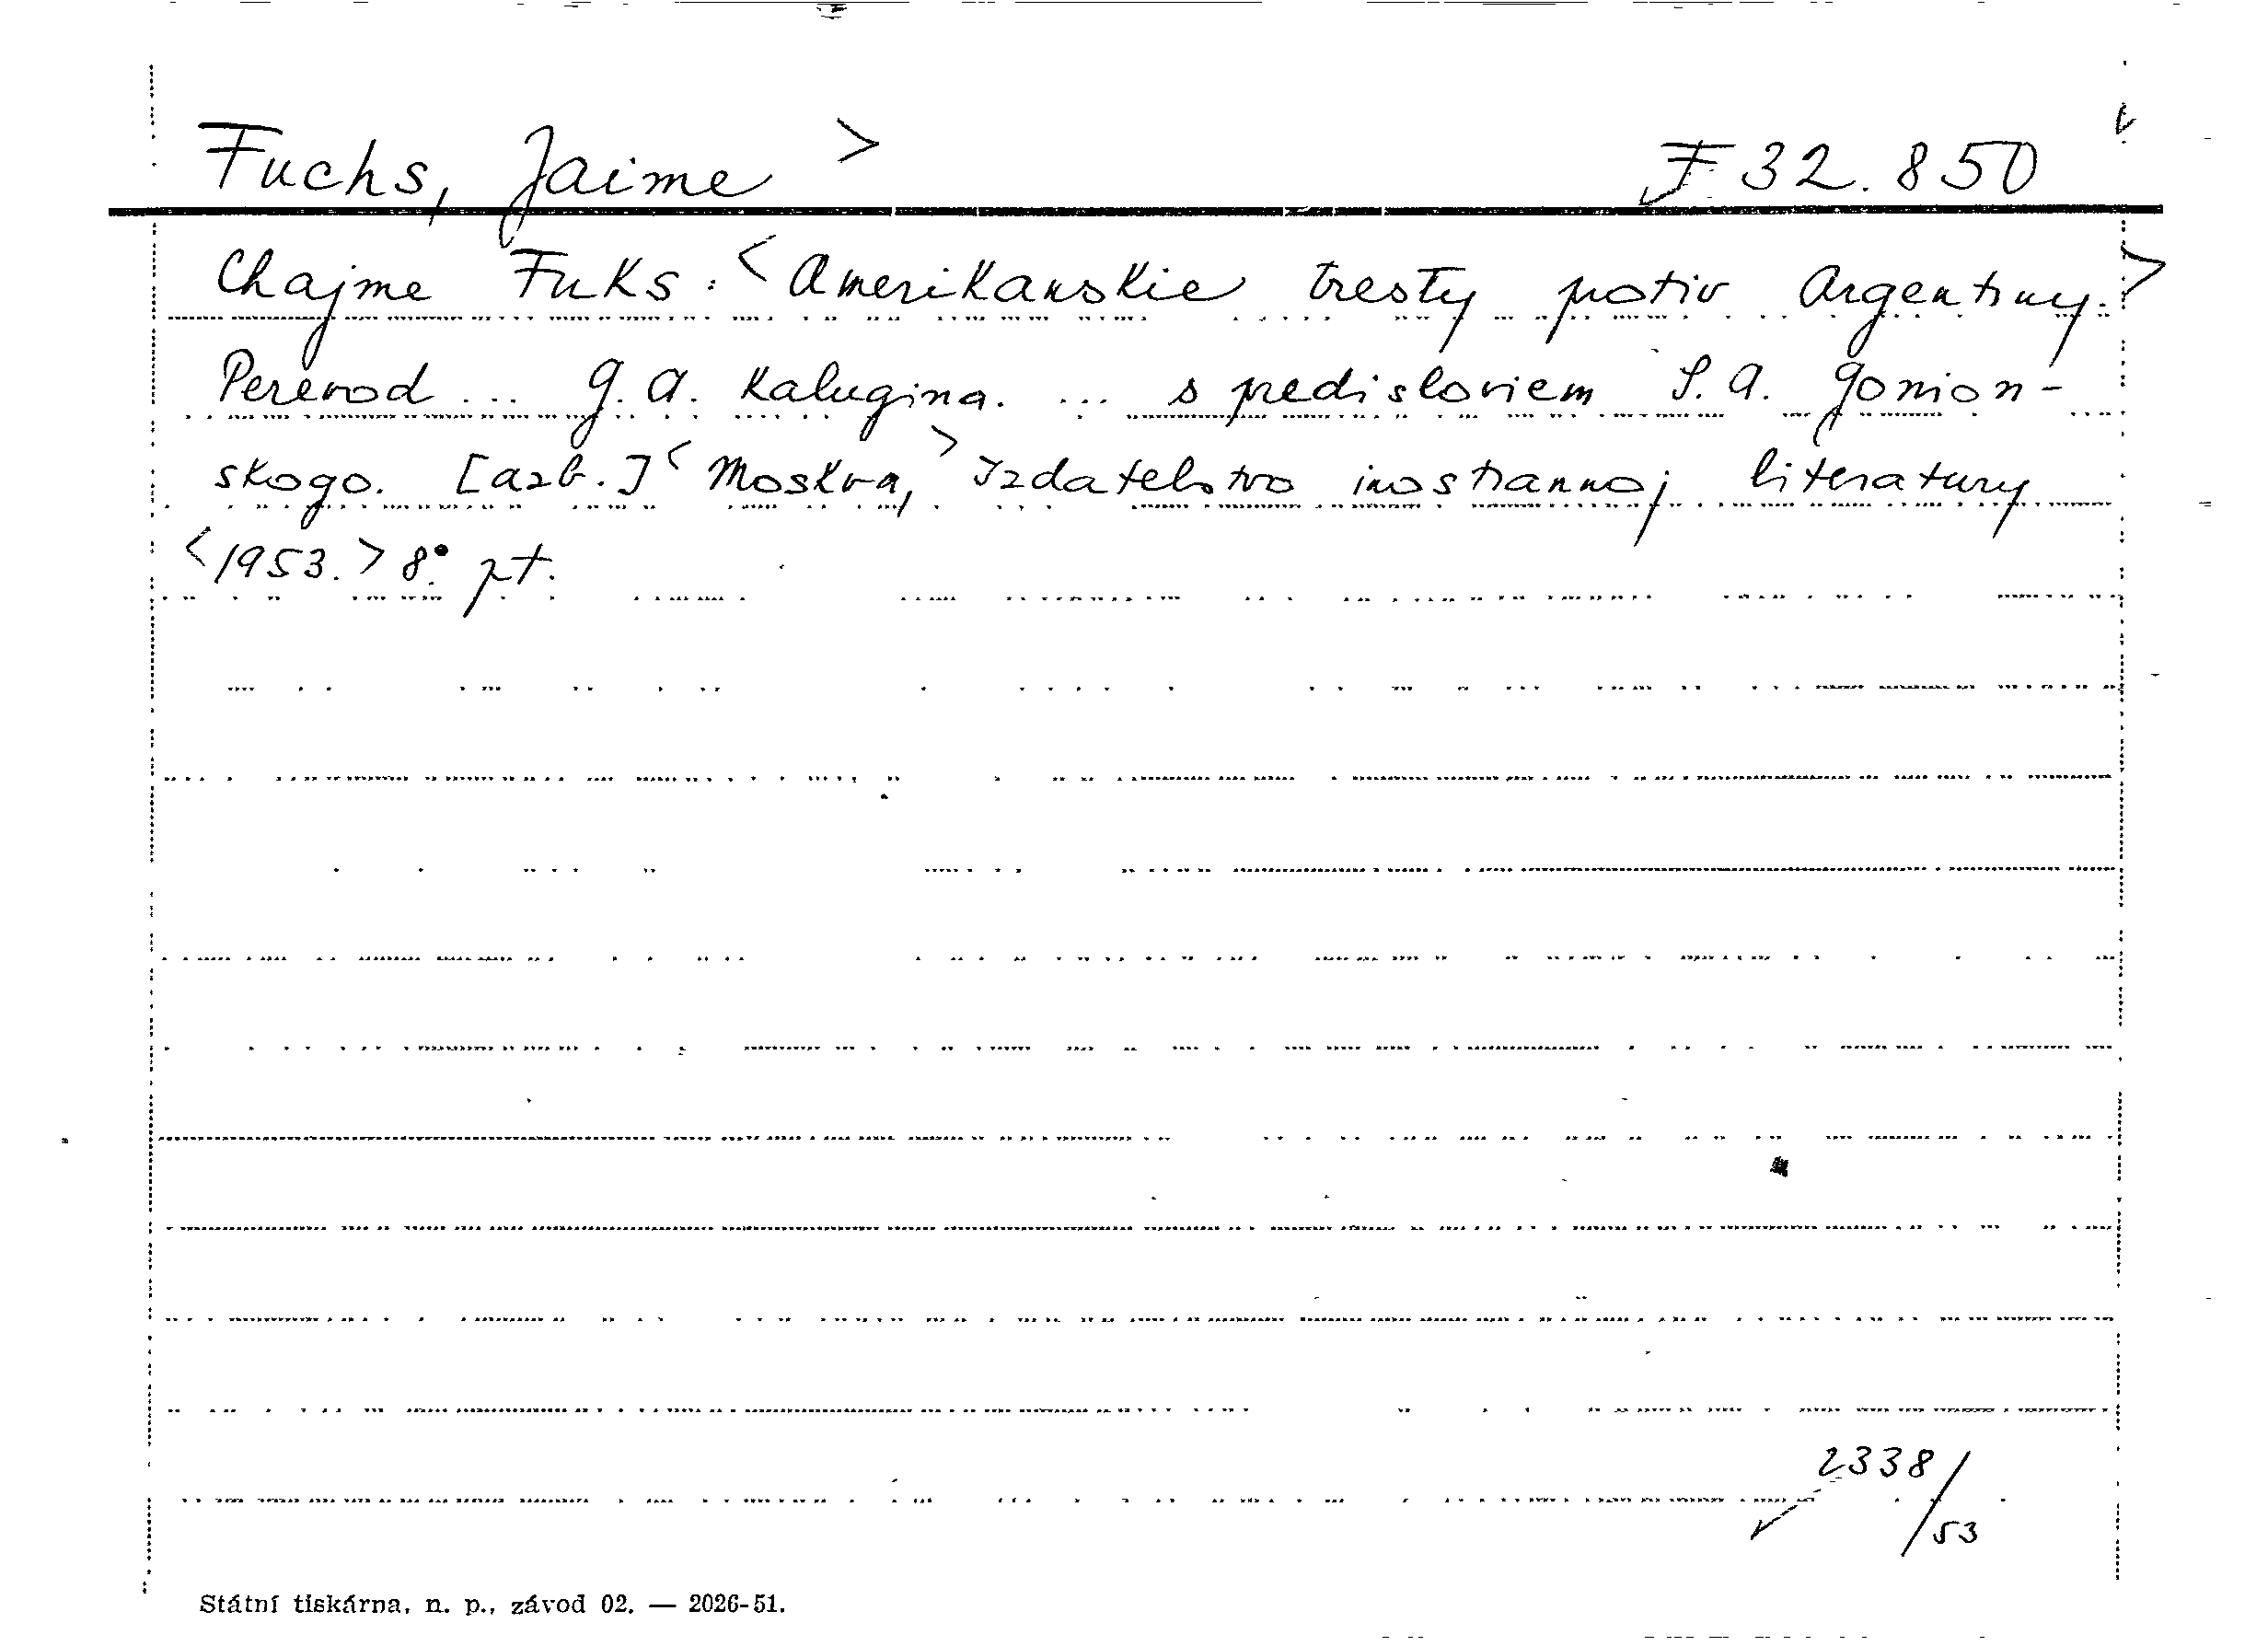 Fuchs, Jaime > F 32.850
Chajme Fuks: <Amerikanskie tresty protiv Argentiny.>
Perevod ... G. A. Kalugina. ... s predisloviem S. A. Gonion-
skogo. [azb.] <Moskva,> Izdatelstvo inostrannoj literatury
<1953.> 8° pt.
2338/53
Státní tiskárna, n. p., závod 02. — 2026-51.